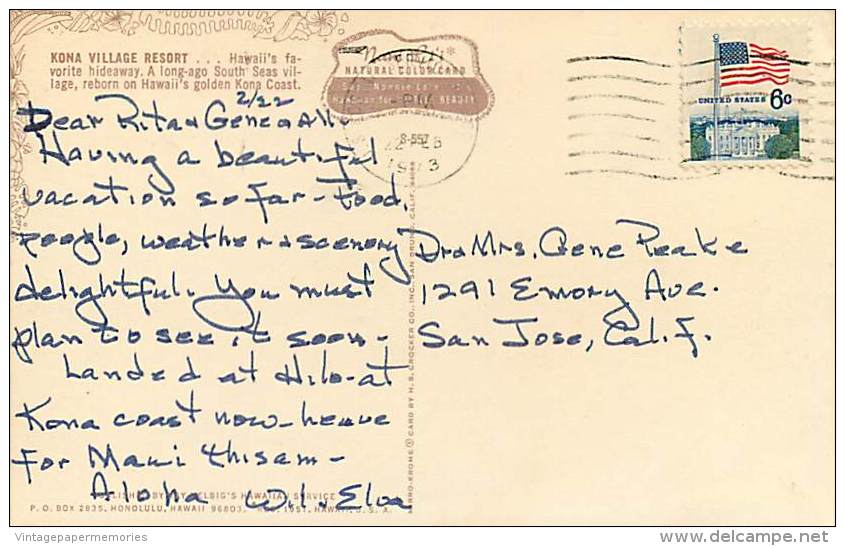 KONA VILLAGE RESORT . . . Hawaii's fa-
vorite hideaway. A long-ago South Seas vil-
lage, reborn on Hawaii's golden Kona Coast.
NATURAL COLOR CARD
BEAUTY
PM
S-557
1973
UNITED STATES 6c
2/22
Dear Rita & Gene & All
Having a beautiful
vacation so far - Food,
people, weather & scenery
delightful. You must
plan to see it soon -
Landed at Hilo - at
Kona coast now - leave
for Maui this am -
Aloha
W.L. & Elva
Dr & Mrs. Gene Peake
1291 Emory Ave.
San Jose, Calif.
CARD BY H. S. CROCKER CO., INC., SAN BRUNO, CALIF.
HAWAIIAN SERVICE
P. O. BOX 2835, HONOLULU, HAWAII 96803 HAWAII, U. S. A.
Vintagepapermemories
delcampe.net